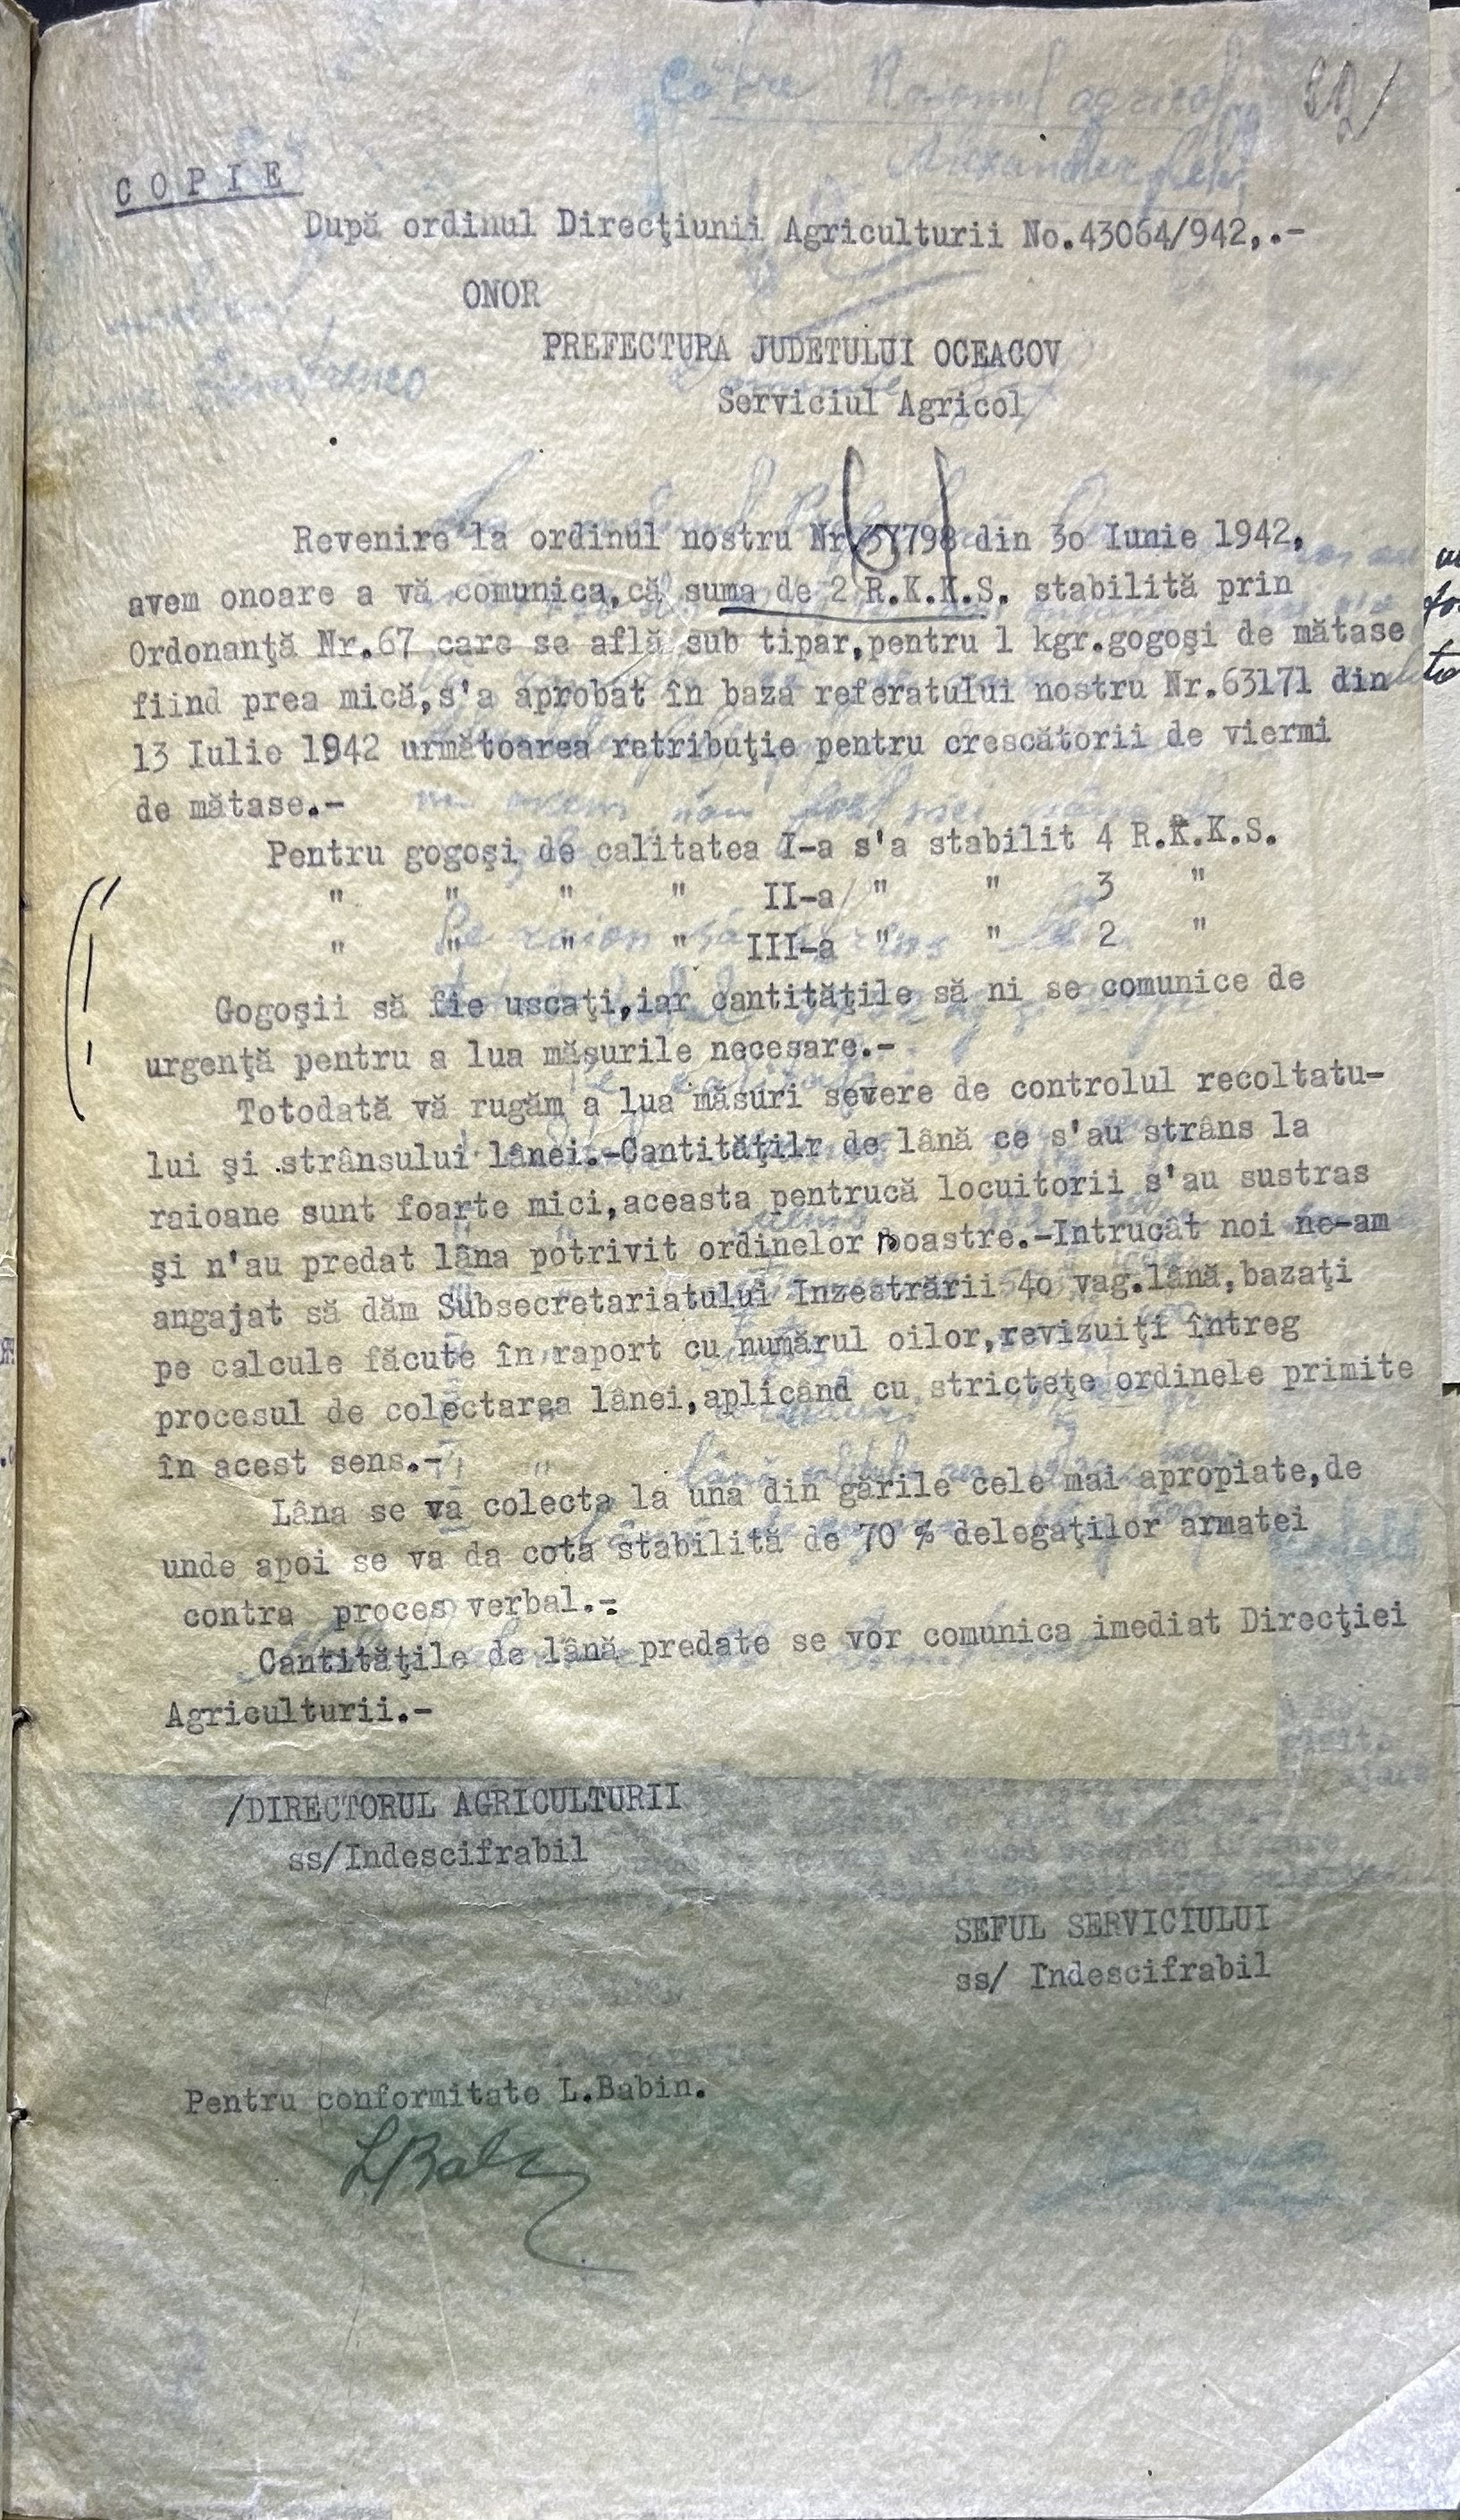 C O P I E
După ordinul Direcţiunii Agriculturii No.43064/942,.-
ONOR
PREFECTURA JUDETULUI OCEACOV
Serviciul Agricol
Revenire la ordinul nostru Nr.37798 din 3o Iunie 1942,
avem onoare a vă comunica,că suma de 2 R.K.K.S. stabilită prin
Ordonanţă Nr.67 care se află sub tipar,pentru 1 kgr.gogoşi de mătase
fiind prea mică,s'a aprobat în baza referatului nostru Nr.63171 din
13 Iulie 1942 următoarea retribuţie pentru crescătorii de viermi
de mătase.-
Pentru gogoşi de calitatea I-a s'a stabilit 4 R.K.K.S.
" " " " II-a " " 3 "
" " " " III-a " " 2 "
Gogoşii să fie uscaţi,iar cantităţile să ni se comunice de
urgenţă pentru a lua măşurile necesare.-
Totodată vă rugăm a lua măsuri severe de controlul recoltatu-
lui şi .strânsului lânei.-Cantităţilr de lână ce s'au strâns la
raioane sunt foarte mici,aceasta pentrucă locuitorii s'au sustras
şi n'au predat lâna potrivit ordinelor noastre.-Intrucât noi ne-am
angajat să dăm Subsecretariatului Inzestrării 4o vag.lână,bazaţi
pe calcule făcute în raport cu numărul oilor,revizuiţi întreg
procesul de colectarea lânei,aplicând cu stricteţe ordinele primite
în acest sens.-
Lâna se va colecta la una din gările cele mai apropiate,de
unde apoi se va da cota stabilită de 70 % delegaţilor armatei
contra proces verbal.-
Cantităţile de lână predate se vor comunica imediat Direcţiei
Agriculturii.-
/DIRECTORUL AGRICULTURII
ss/Indescifrabil
SEFUL SERVICIULUI
ss/ Indescifrabil
Pentru conformitate L.Babin.